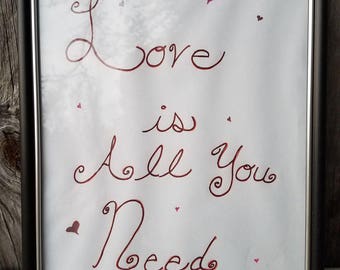 Love
is
All You
Need